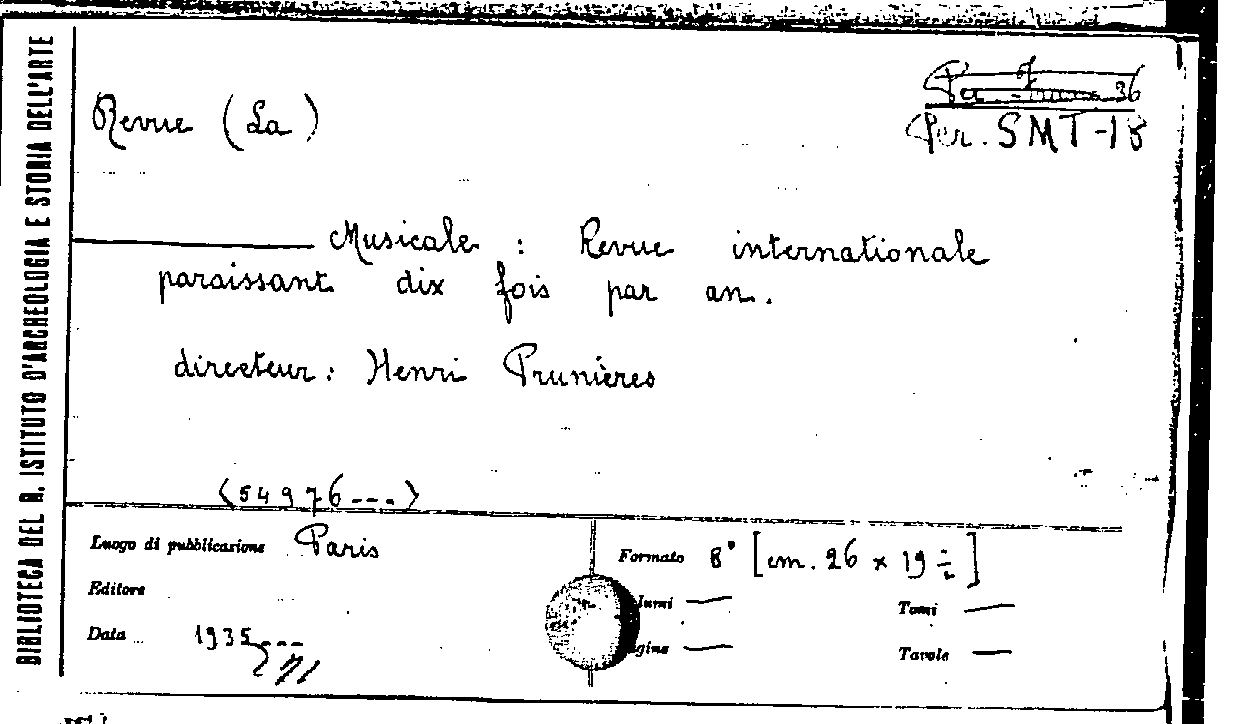 BIBLIOTECA DEL R. ISTITUTO D'ARCHEOLOGIA E STORIA DELL'ARTE
Per 36
Revue (La)
Per. SMT-18
Musicale : Revue internationale
paraissant dix fois par an.
directeur : Henri Prunières
(54976---)
Luogo di pubblicazione Paris
Formato 8° [cm. 26 x 19 ½]
Editore
lumi — Tomi —
Data 1935---
gine — Tavole —